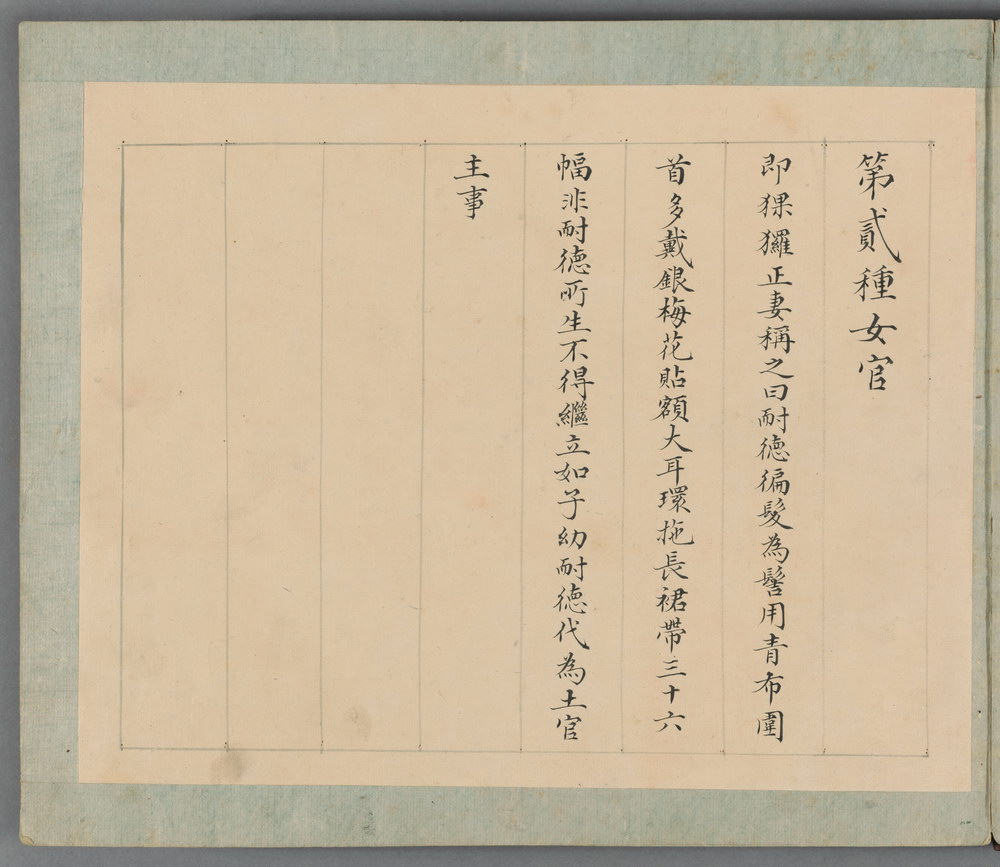 第貳種女官
即猓玀正妻稱之曰耐德徧髮為髻用青布圍
首多戴銀梅花貼額大耳環拖長裙帶三十六
幅非耐德所生不得繼立如子幼耐德代為土官
主事